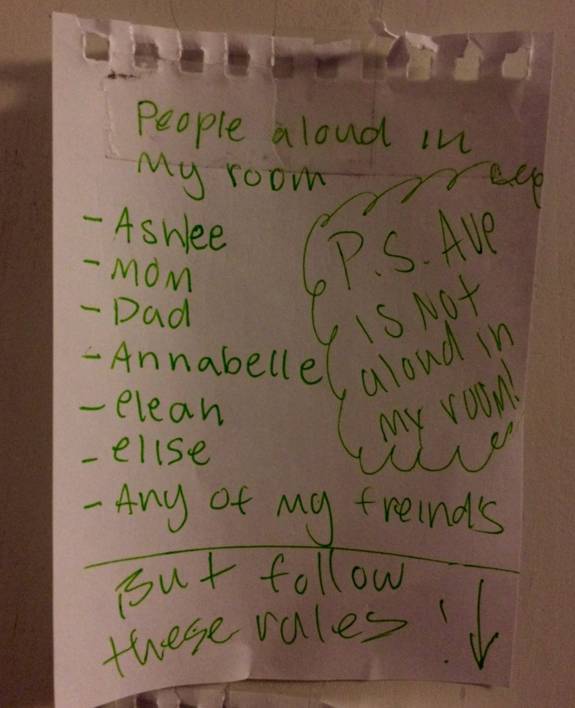 People aloud in
My room
- Ashlee
- MOM
- Dad
- Annabelle
- elean
- elise
- Any of my freind's
P.S. Ave
is Not
aloud in
my room!
But follow
these rules! ↓